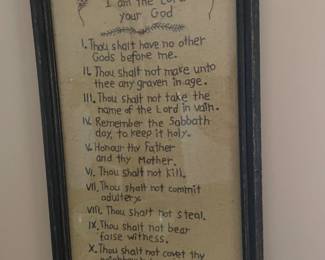 I am the Lord
your God
I. Thou shalt have no other
Gods before me.
II. Thou shalt not make unto
thee any graven in age.
III. Thou shalt not take the
name of the Lord in vain.
IV. Remember the Sabbath
day, to keep it holy.
V. Honour thy Father
and thy Mother.
VI. Thou shalt not kill.
VII. Thou shalt not commit
adultery.
VIII. Thou shalt not steal.
IX. Thou shalt not bear
false witness.
X. Thou shalt not covet thy